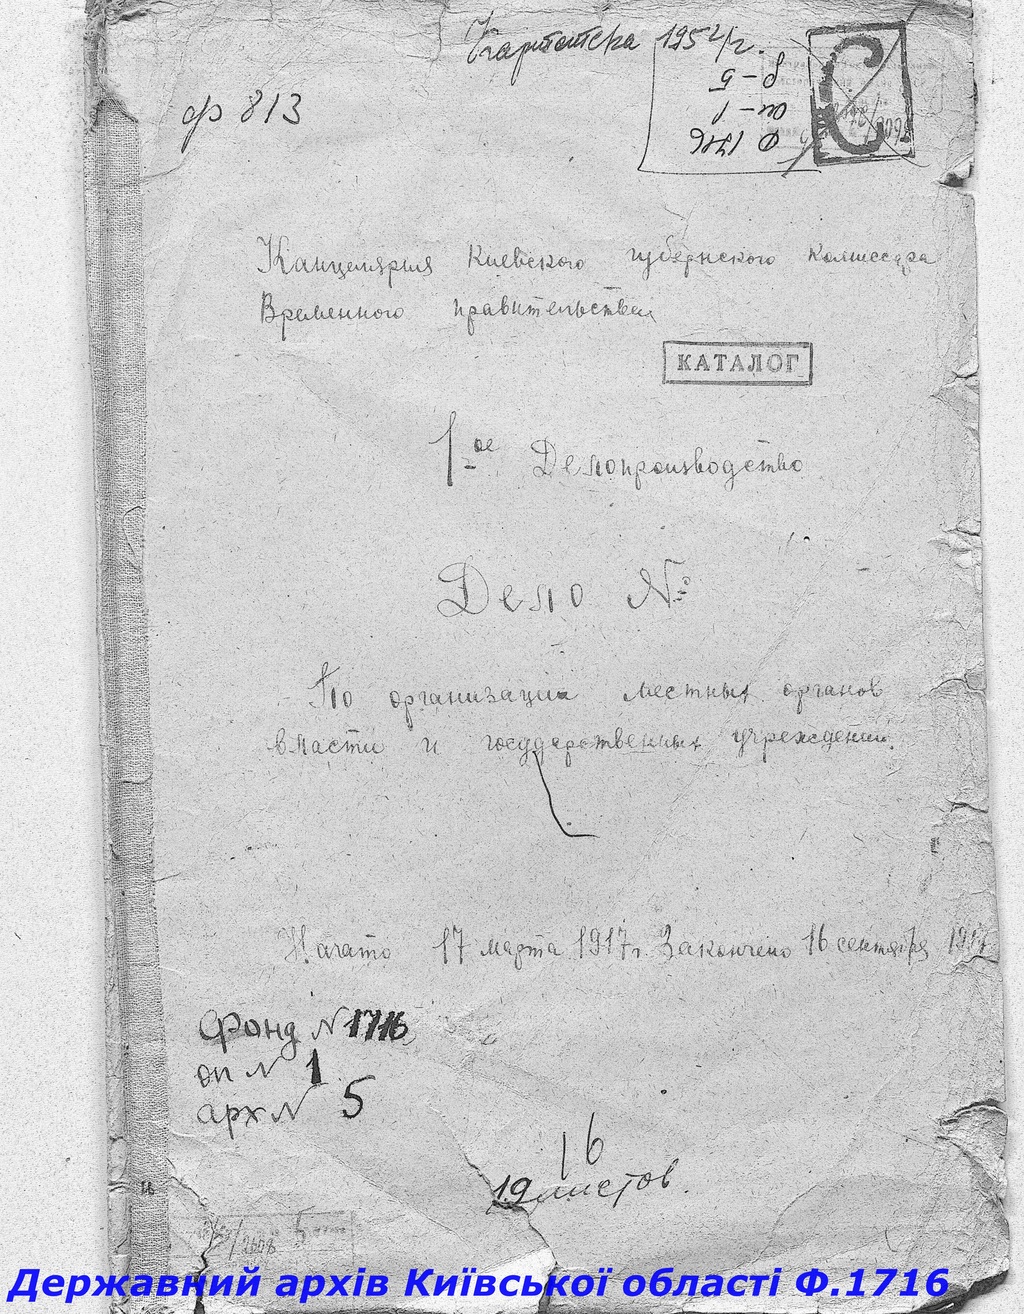 Картотека 1952 г.
ф 813
Ф 1716
оп-1
д-5
С
Канцелярия Киевского губернского комиссара
Временного правительства
КАТАЛОГ
1-ое Делопроизводство
Дело №
По организации местных органов
власти и государственных учреждений.
Начато 17 марта 1917 г. Закончено 16 сентября 1917
Фонд N 1716
оп N 1
арх N 5
16
19 листов.
Державний архів Київської області Ф.1716